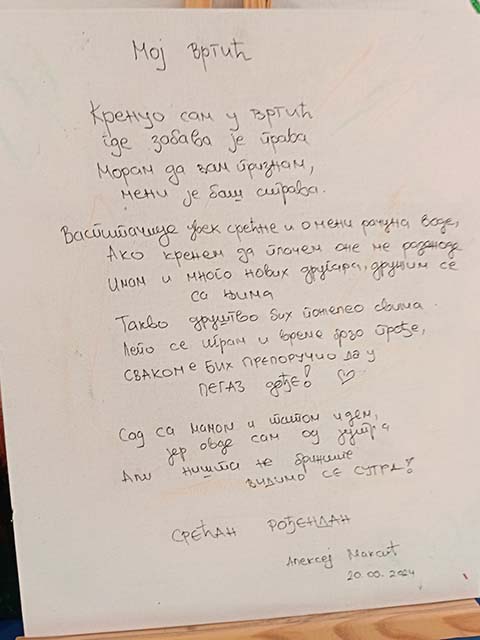 Мој вртић
Кренуо сам у вртић
где забава је права
Морам да вам признам,
мени је баш стрava.
Васпитачице увек срећне и о мени рачуна воде,
Ако кренем да плачем оне ме разоноде
Имам и много нових другара, дружим се
са њима
Такво друштво бих пожелео свима.
Лепо се играм и време брзо прође,
СВАКОМЕ БИХ ПРЕПОРУЧИО ДА У
ПЕГАЗ дође! ♡
Сад са мамом и татом идем,
јер овде сам од јутра
Али ништа не брините
ВИДИМО СЕ СУТРА!
СРЕЋАН РОЂЕНДАН
Алексеј
2024